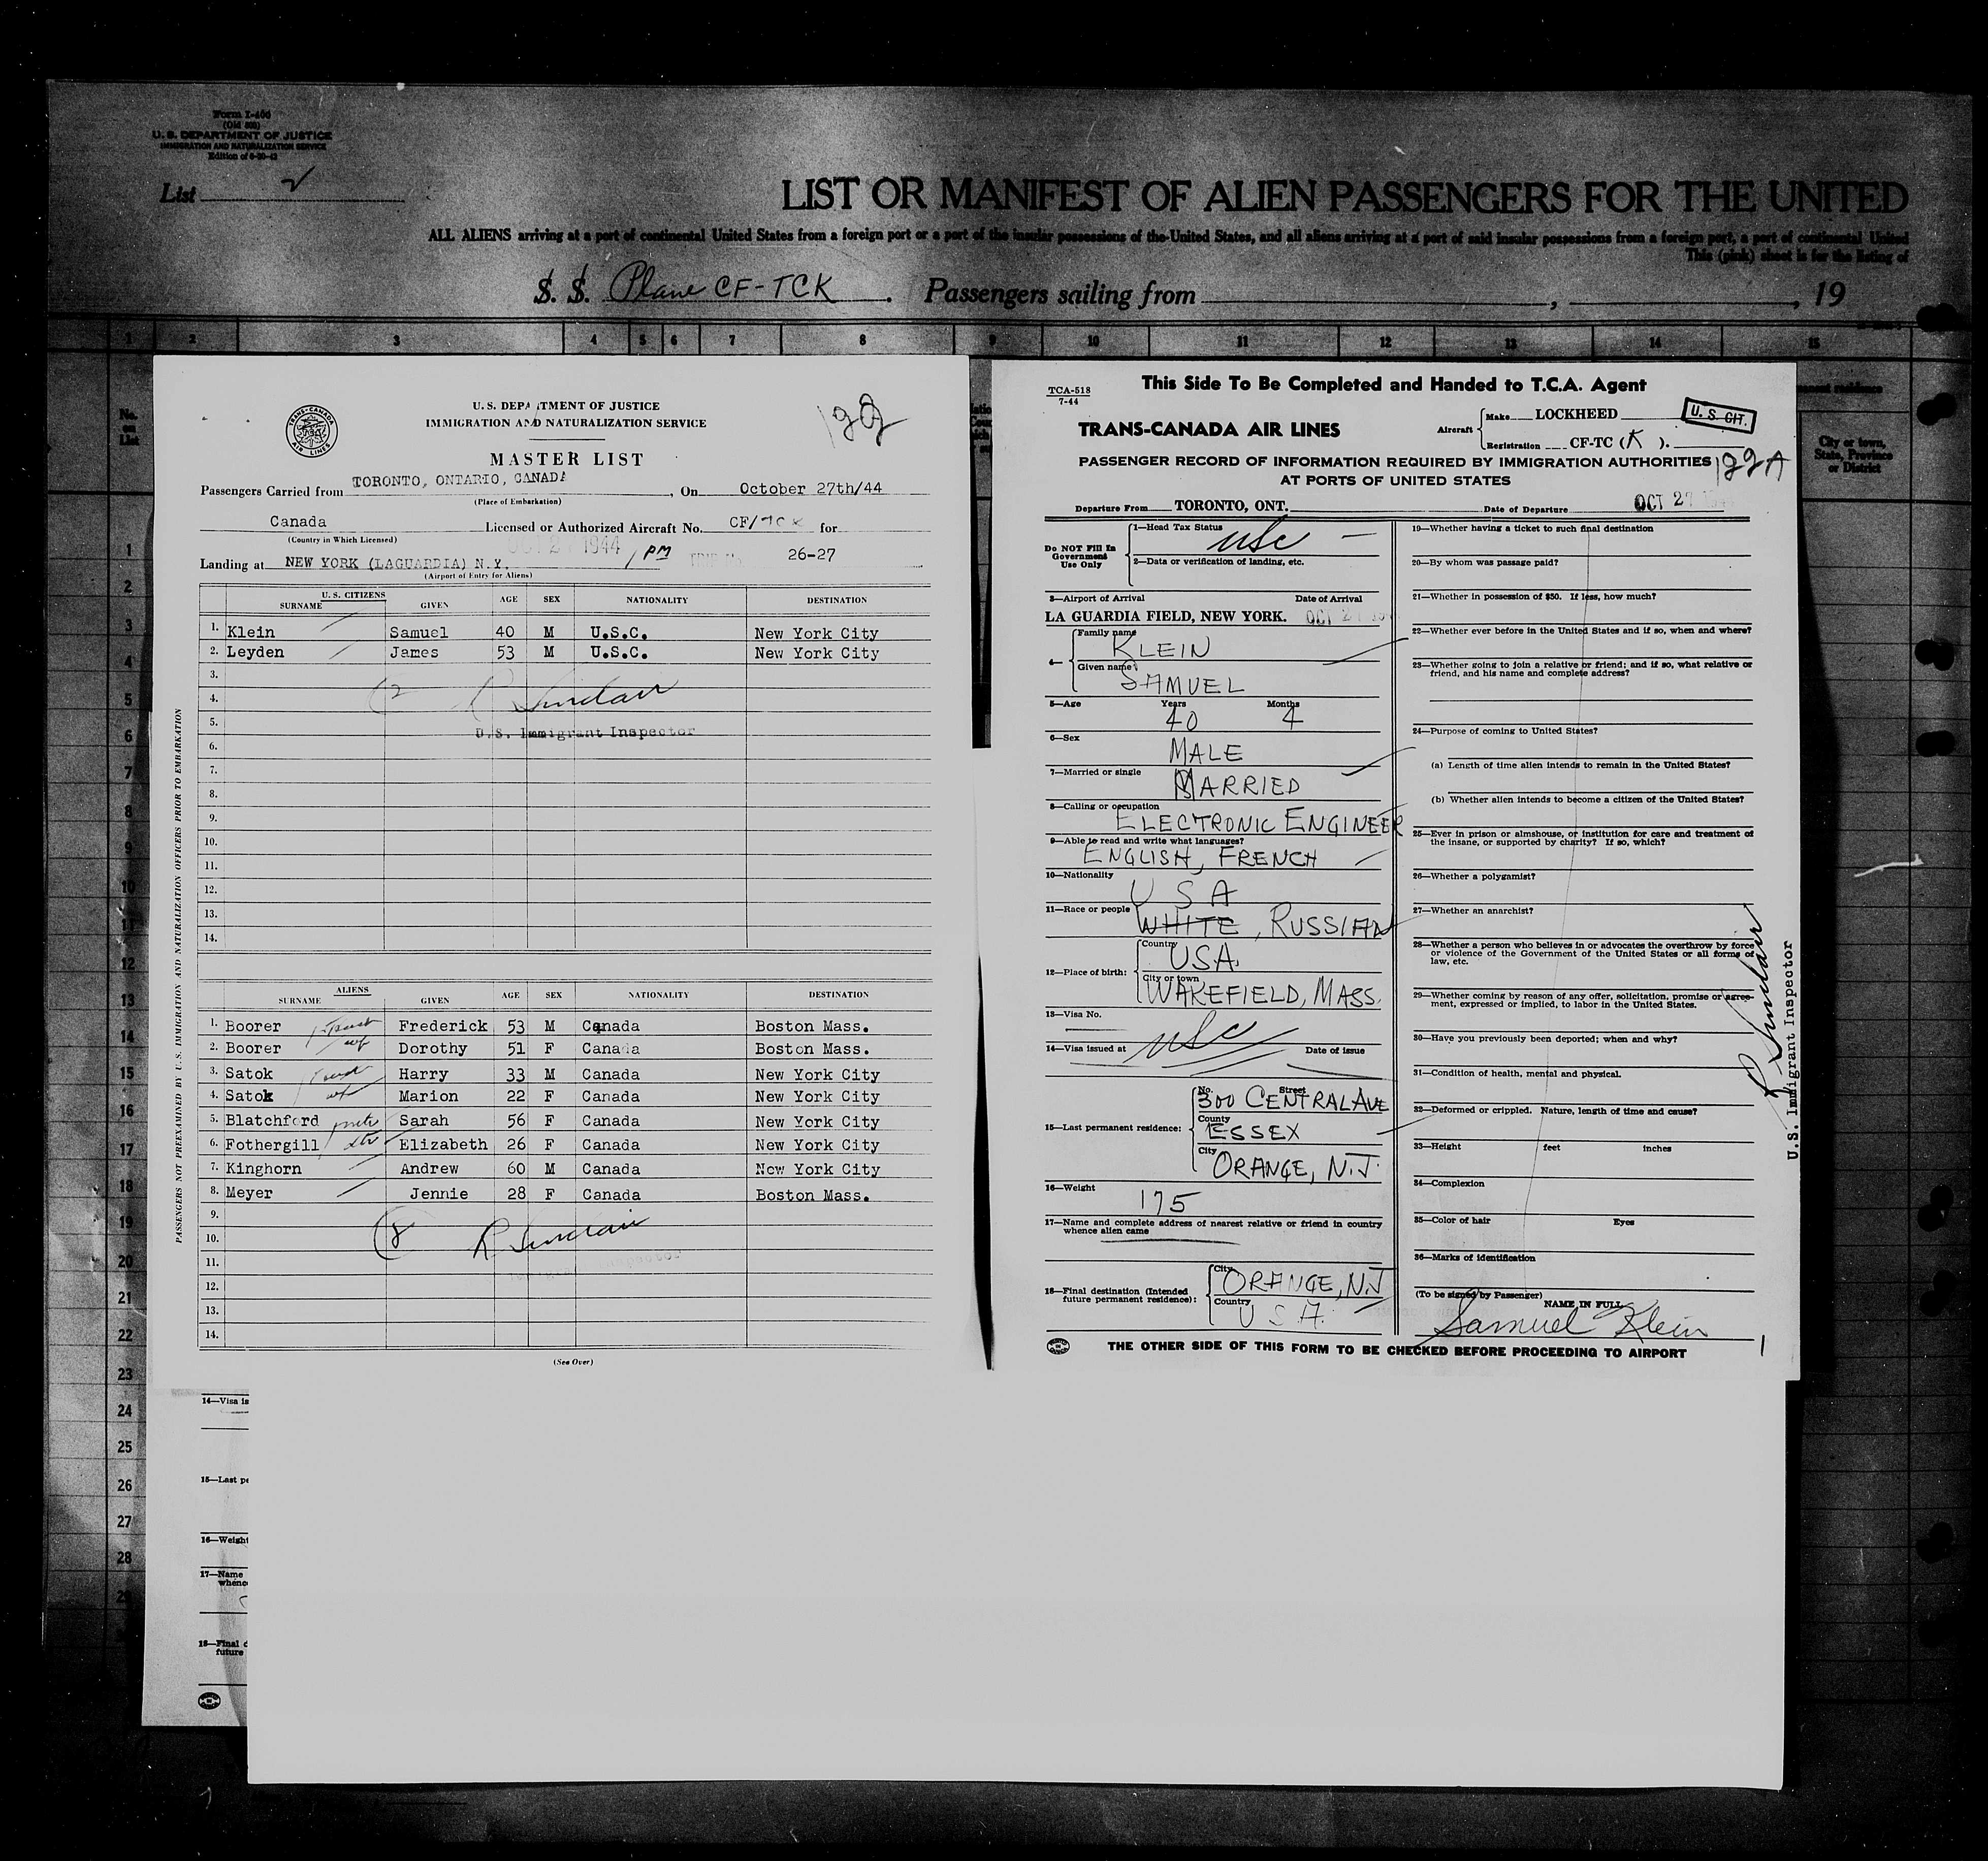 Form I-400
(Old 500)
U. S. DEPARTMENT OF JUSTICE
IMMIGRATION AND NATURALIZATION SERVICE
List
LIST OR MANIFEST OF ALIEN PASSENGERS FOR THE UNITED
ALL ALIENS arriving at a port of continental United States from a foreign port or a port of the insular possessions of the United States, and all aliens arriving at a port of said insular possessions from a foreign port, a port of continental United
This (pink) sheet is for the listing of
S. S. Plane CF-TCK. Passengers sailing from , , 19
1 2 3 4 5 6 7 8 9 10 11 12 13 14 15
No. on List
City or town, State, Province or District
TRANS-CANADA AIR LINES
U. S. DEPARTMENT OF JUSTICE
IMMIGRATION AND NATURALIZATION SERVICE
MASTER LIST
Passengers Carried from TORONTO, ONTARIO, CANADA, On October 27th/44
(Place of Embarkation)
Canada Licensed or Authorized Aircraft No. CF/TCK for
(Country in Which Licensed)
OCT 27 1944 PM TRIP No.
Landing at NEW YORK (LAGUARDIA) N.Y. 26-27
(Airport of Entry for Aliens)
U. S. CITIZENS
SURNAME GIVEN AGE SEX NATIONALITY DESTINATION
1. Klein Samuel 40 M U.S.C. New York City
2. Leyden James 53 M U.S.C. New York City
3.
4. (2 R Sinclair
5. U.S. Immigrant Inspector
6.
7.
8.
9.
10.
11.
12.
13.
14.
ALIENS
SURNAME GIVEN AGE SEX NATIONALITY DESTINATION
1. Boorer Frederick 53 M Canada Boston Mass.
2. Boorer wf Dorothy 51 F Canada Boston Mass.
3. Satok Harry 33 M Canada New York City
4. Satok wf Marion 22 F Canada New York City
5. Blatchford Sarah 56 F Canada New York City
6. Fothergill Elizabeth 26 F Canada New York City
7. Kinghorn Andrew 60 M Canada New York City
8. Meyer Jennie 28 F Canada Boston Mass.
9.
10. (8 R Sinclair
11.
12.
13.
14.
(See Over)
PASSENGERS NOT PREEXAMINED BY U.S. IMMIGRATION AND NATURALIZATION OFFICERS PRIOR TO EMBARKATION
TCA-518
7-44
This Side To Be Completed and Handed to T.C.A. Agent
TRANS-CANADA AIR LINES
Aircraft
Make LOCKHEED
Registration CF-TC (K).
U. S. CIT.
PASSENGER RECORD OF INFORMATION REQUIRED BY IMMIGRATION AUTHORITIES
AT PORTS OF UNITED STATES
Departure From TORONTO, ONT. Date of Departure OCT 27
Do NOT Fill In Government Use Only
1—Head Tax Status usc
2—Data or verification of landing, etc.
3—Airport of Arrival Date of Arrival
LA GUARDIA FIELD, NEW YORK. OCT 27
4— Family name KLEIN
Given name SAMUEL
5—Age Years 40 Months 4
6—Sex MALE
7—Married or single MARRIED
8—Calling or occupation ELECTRONIC ENGINEER
9—Able to read and write what languages?
ENGLISH, FRENCH
10—Nationality USA
11—Race or people WHITE, RUSSIAN
12—Place of birth: Country USA.
City or town WAKEFIELD, MASS.
13—Visa No. usc
14—Visa issued at Date of issue
15—Last permanent residence: No. Street 300 CENTRAL AVE
County ESSEX
City ORANGE, N.J.
16—Weight 175
17—Name and complete address of nearest relative or friend in country
whence alien came
18—Final destination (Intended future permanent residence): City ORANGE, N.J
Country U S A.
19—Whether having a ticket to such final destination
20—By whom was passage paid?
21—Whether in possession of $50. If less, how much?
22—Whether ever before in the United States and if so, when and where?
23—Whether going to join a relative or friend; and if so, what relative or
friend, and his name and complete address?
24—Purpose of coming to United States?
(a) Length of time alien intends to remain in the United States?
(b) Whether alien intends to become a citizen of the United States?
25—Ever in prison or almshouse, or institution for care and treatment of
the insane, or supported by charity? If so, which?
26—Whether a polygamist?
27—Whether an anarchist?
28—Whether a person who believes in or advocates the overthrow by force
or violence of the Government of the United States or all forms of
law, etc.
29—Whether coming by reason of any offer, solicitation, promise or agree-
ment, expressed or implied, to labor in the United States.
30—Have you previously been deported; when and why?
31—Condition of health, mental and physical.
32—Deformed or crippled. Nature, length of time and cause?
33—Height feet inches
34—Complexion
35—Color of hair Eyes
36—Marks of identification
(To be signed by Passenger)
NAME IN FULL
Samuel Klein
R Sinclair
U.S. Immigrant Inspector
THE OTHER SIDE OF THIS FORM TO BE CHECKED BEFORE PROCEEDING TO AIRPORT
1
2
3
4
5
6
7
8
9
10
11
12
13
14
15
16
17
18
19
20
21
22
23
24
25
26
27
28
29
14—Visa is
15—Last pe
16—Weight
17—Name
whence
18—Final d
future